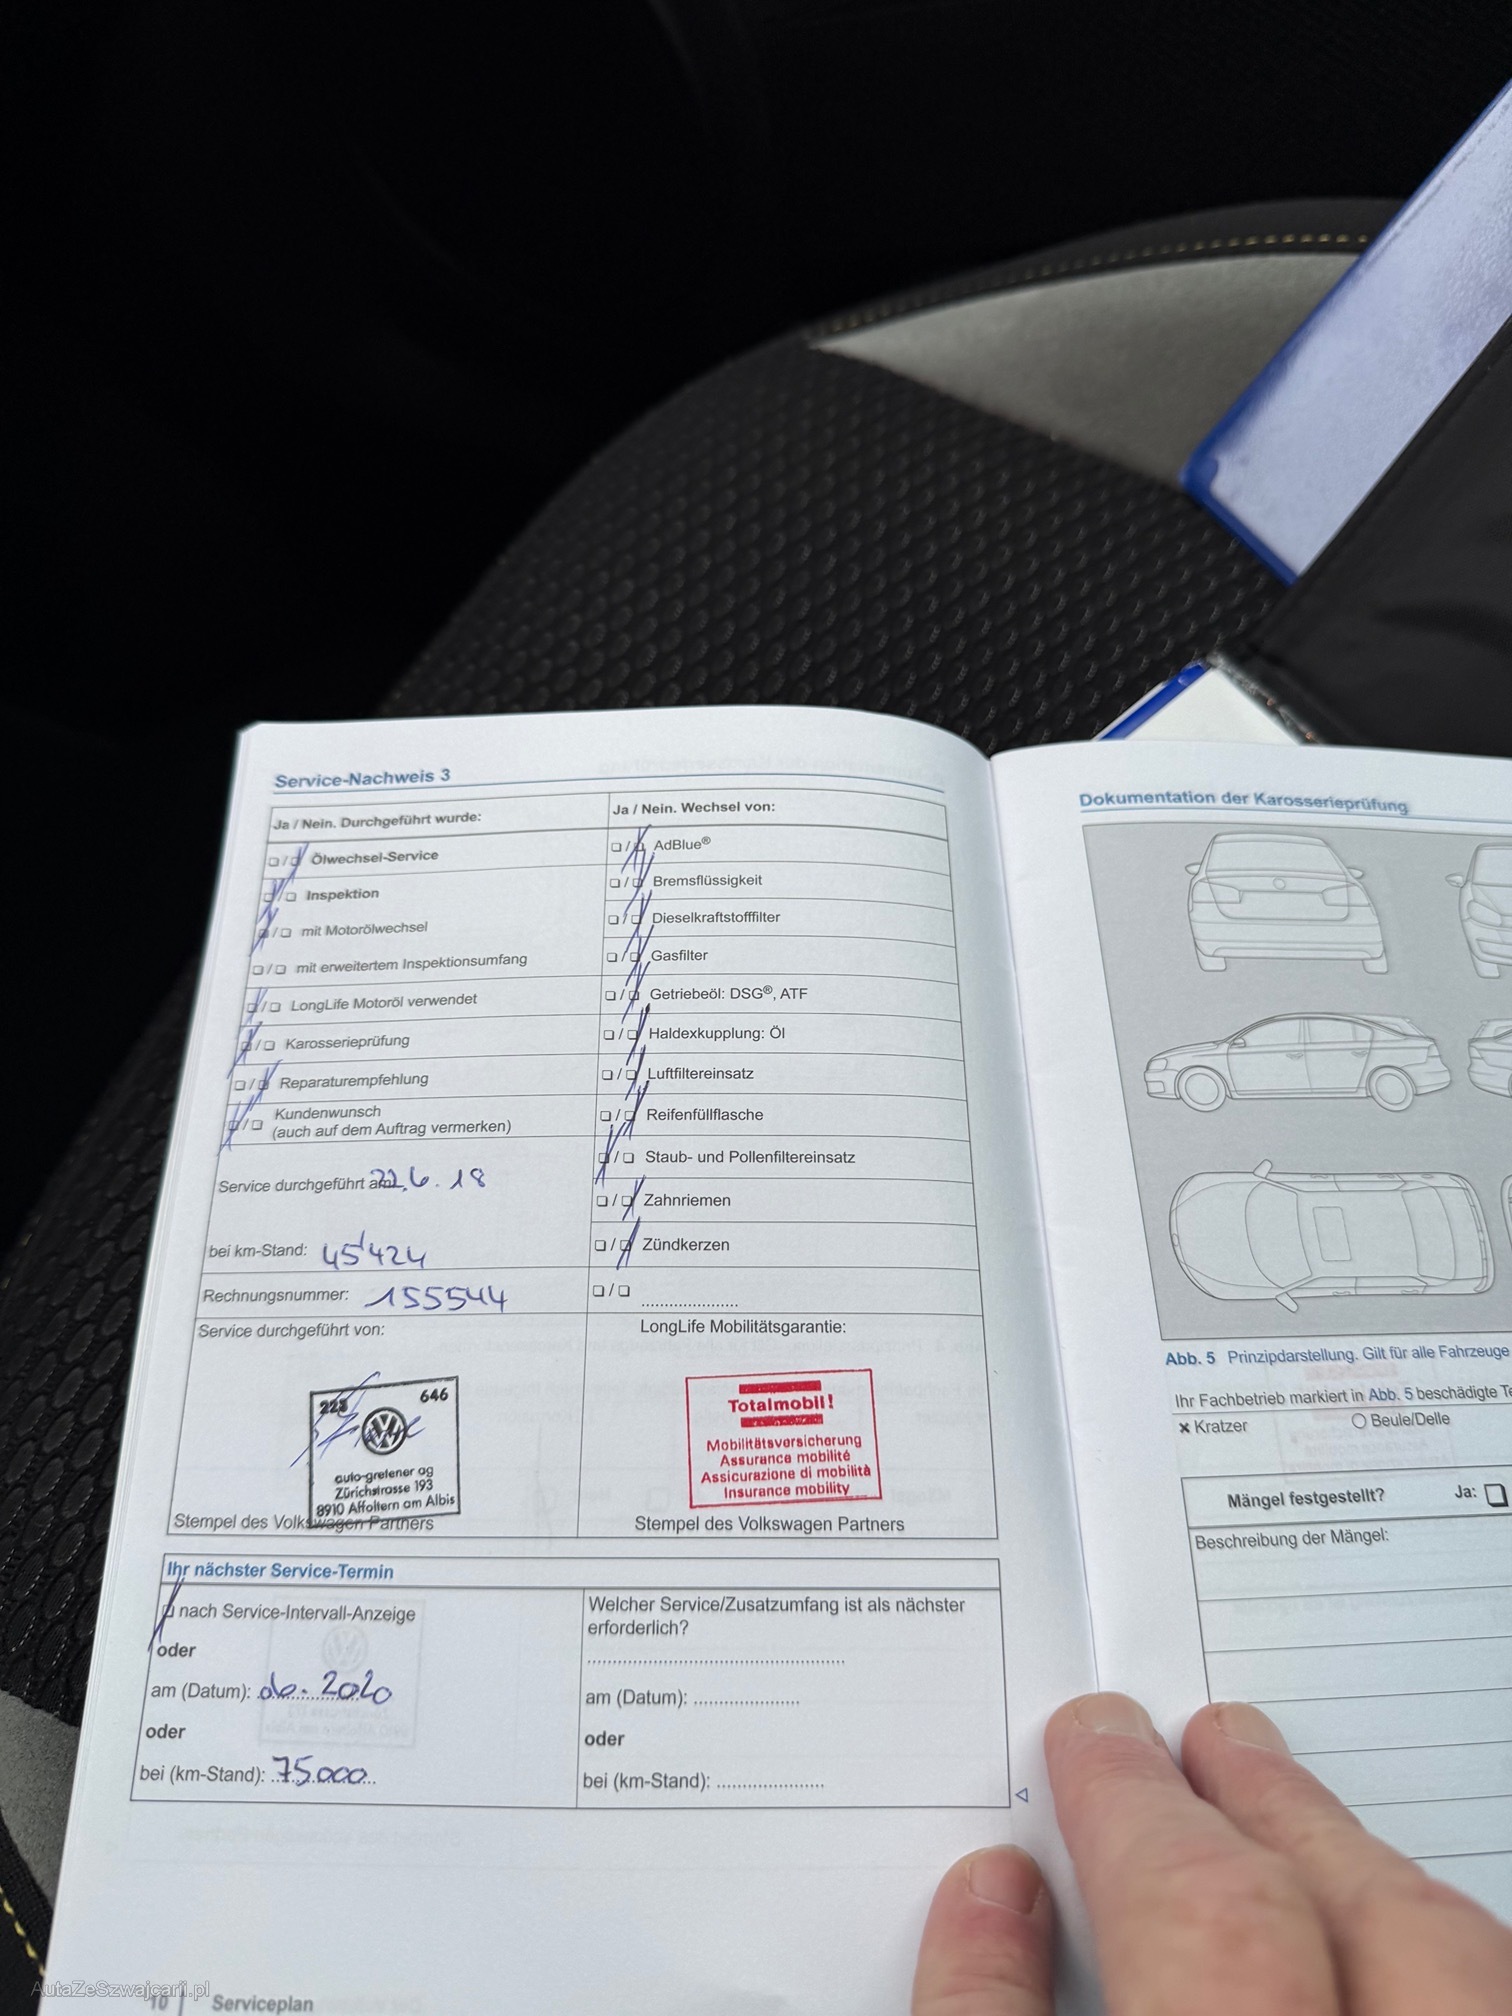 Service-Nachweis 3
Ja / Nein. Durchgeführt wurde:
Ölwechsel-Service
Inspektion
mit Motorölwechsel
mit erweitertem Inspektionsumfang
LongLife Motoröl verwendet
Karosserieprüfung
Reparaturempfehlung
Kundenwunsch
(auch auf dem Auftrag vermerken)
Service durchgeführt am: 22.6.18
bei km-Stand: 45'424
Rechnungsnummer: 155544
Service durchgeführt von:
223 646
auto-gretener ag
Zürichstrasse 193
8910 Affoltern am Albis
Stempel des Volkswagen Partners
Ja / Nein. Wechsel von:
AdBlue®
Bremsflüssigkeit
Dieselkraftstofffilter
Gasfilter
Getriebeöl: DSG®, ATF
Haldexkupplung: Öl
Luftfiltereinsatz
Reifenfüllflasche
Staub- und Pollenfiltereinsatz
Zahnriemen
Zündkerzen
LongLife Mobilitätsgarantie:
Totalmobil!
Mobilitätsversicherung
Assurance mobilité
Assicurazione di mobilità
Insurance mobility
Stempel des Volkswagen Partners
Ihr nächster Service-Termin
nach Service-Intervall-Anzeige
oder
am (Datum): 06.2020
oder
bei (km-Stand): 75.000
Welcher Service/Zusatzumfang ist als nächster
erforderlich?
am (Datum):
oder
bei (km-Stand):
10 Serviceplan
Dokumentation der Karosserieprüfung
Abb. 5 Prinzipdarstellung. Gilt für alle Fahrzeuge
Ihr Fachbetrieb markiert in Abb. 5 beschädigte
Kratzer
Beule/Delle
Mängel festgestellt? Ja:
Beschreibung der Mängel:
AutaZeSzwajcarii.pl